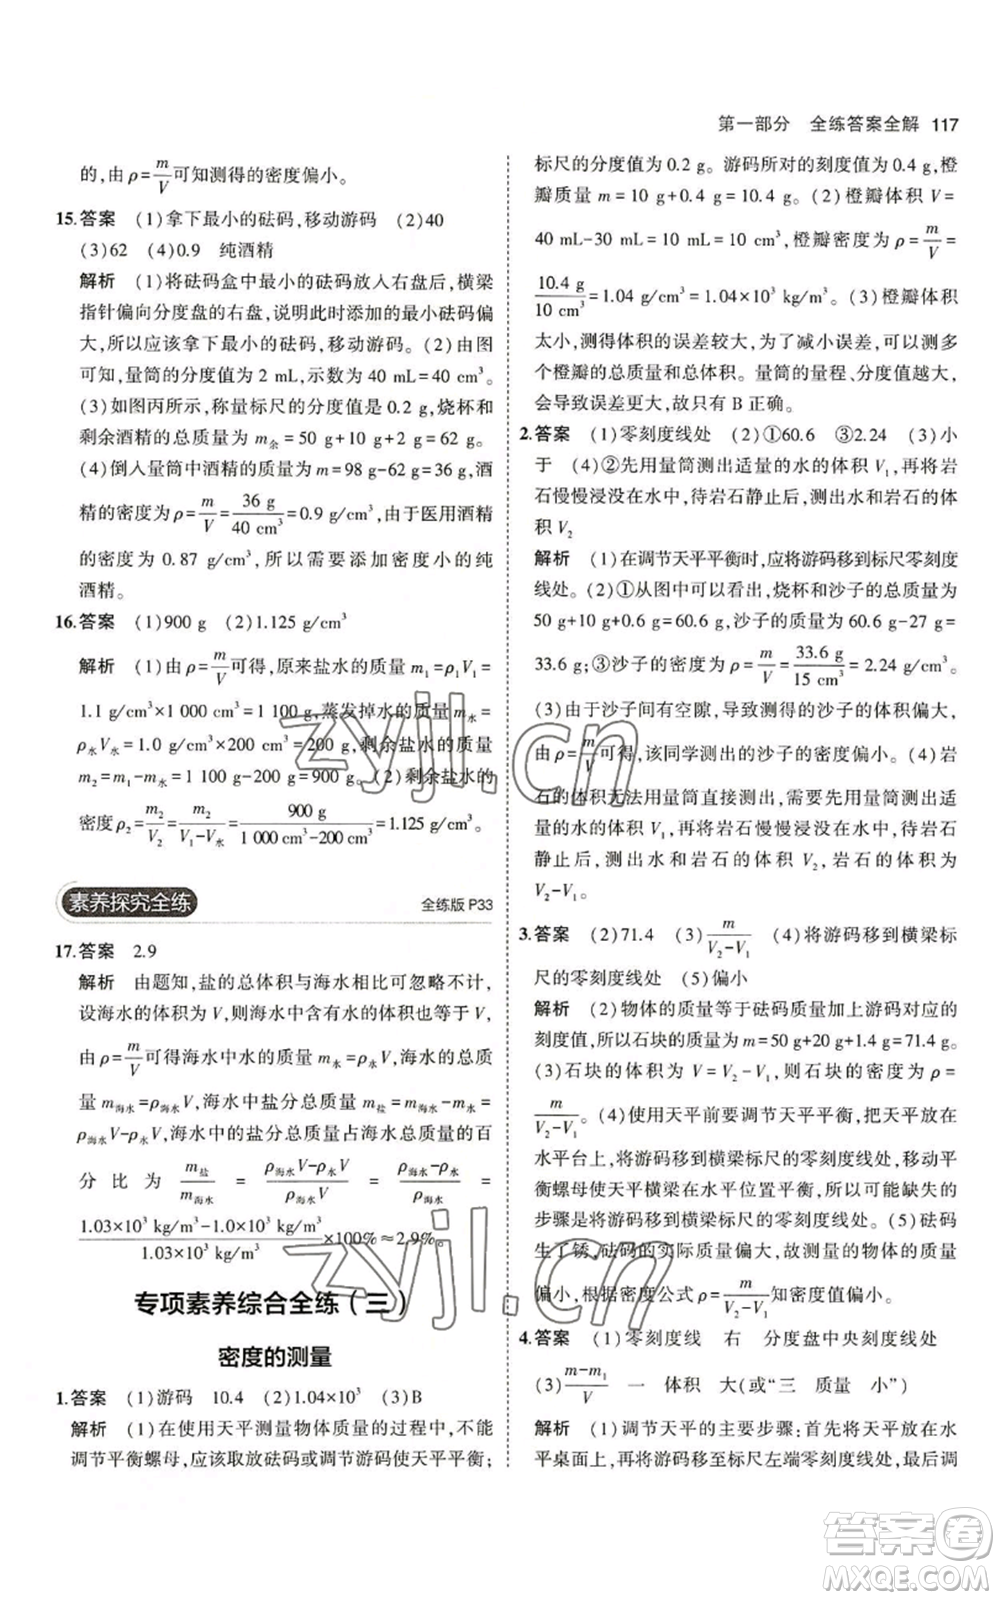 第一部分 全练答案全解 117
的,由ρ=m/V可知测得的密度偏小。
15.答案 (1)拿下最小的砝码,移动游码 (2)40
(3)62 (4)0.9 纯酒精
解析 (1)将砝码盒中最小的砝码放入右盘后,横梁
指针偏向分度盘的右盘,说明此时添加的最小砝码偏
大,所以应该拿下最小的砝码,移动游码。(2)由图
可知,量筒的分度值为 2 mL,示数为 40 mL=40 cm³。
(3)如图丙所示,称量标尺的分度值是 0.2 g,烧杯和
剩余酒精的总质量为 m余=50 g+10 g+2 g=62 g。
(4)倒入量筒中酒精的质量为 m=98 g-62 g=36 g,酒
精的密度为ρ=m/V=36 g/40 cm³=0.9 g/cm³,由于医用酒精
的密度为 0.87 g/cm³,所以需要添加密度小的纯
酒精。
16.答案 (1)900 g (2)1.125 g/cm³
解析 (1)由ρ=m/V可得,原来盐水的质量 m₁=ρ₁V₁=
1.1 g/cm³×1 000 cm³=1 100 g,蒸发掉水的质量 m水=
ρ水V水=1.0 g/cm³×200 cm³=200 g,剩余盐水的质量
m₂=m₁-m水=1 100 g-200 g=900 g。(2)剩余盐水的
密度ρ₂=m₂/V₂=m₂/(V₁-V水)=900 g/(1 000 cm³-200 cm³)=1.125 g/cm³。
素养探究全练 全练版 P33
17.答案 2.9
解析 由题知,盐的总体积与海水相比可忽略不计,
设海水的体积为 V,则海水中水的体积也为 V,
由ρ=m/V可得海水中水的质量 m水=ρ水V,海水的总质
量 m海水=ρ海水V,海水中盐分总质量 m盐=m海水-m水=
ρ海水V-ρ水V,海水中的盐分总质量占海水总质量的百
分比为 m盐/m海水 = (ρ海水V-ρ水V)/(ρ海水V) =
(1.03×10³ kg/m³-1.0×10³ kg/m³)/(1.03×10³ kg/m³)×100%≈2.9%。
专项素养综合全练(三)
密度的测量
1.答案 (1)游码 10.4 (2)1.04×10³ (3)B
解析 (1)在使用天平测量物体质量的过程中,不能
调节平衡螺母,应该取放砝码或调节游码使天平平衡;
标尺的分度值为 0.2 g。游码所对的刻度值为 0.4 g,橙
瓣质量 m=10 g+0.4 g=10.4 g。(2)橙瓣体积 V=
40 mL-30 mL=10 mL=10 cm³,橙瓣密度为ρ=m/V=
10.4 g/10 cm³=1.04 g/cm³=1.04×10³ kg/m³。(3)橙瓣体积
太小,测得体积的误差较大,为了减小误差,可以测多
个橙瓣的总质量和总体积。量筒的量程、分度值越大,
会导致误差更大,故只有 B 正确。
2.答案 (1)零刻度线处 (2)①60.6 ③2.24 (3)小
于 (4)②先用量筒测出适量的水的体积 V₁,再将岩
石慢慢浸没在水中,待岩石静止后,测出水和岩石的体
积 V₂
解析 (1)在调节天平平衡时,应将游码移到标尺零刻度
线处。(2)①从图中可以看出,烧杯和沙子的总质量为
50 g+10 g+0.6 g=60.6 g,沙子的质量为 60.6 g-27 g=
33.6 g;③沙子的密度为ρ=m/V=33.6 g/15 cm³=2.24 g/cm³。
(3)由于沙子间有空隙,导致测得的沙子的体积偏大,
由ρ=m/V可得,该同学测出的沙子的密度偏小。(4)岩
石的体积无法用量筒直接测出,需要先用量筒测出适
量的水的体积 V₁,再将岩石慢慢浸没在水中,待岩石
静止后,测出水和岩石的体积 V₂,岩石的体积为
V₂-V₁。
3.答案 (2)71.4 (3)m/(V₂-V₁) (4)将游码移到横梁标
尺的零刻度线处 (5)偏小
解析 (2)物体的质量等于砝码质量加上游码对应的
刻度值,所以石块的质量为 m=50 g+20 g+1.4 g=71.4 g。
(3)石块的体积为 V=V₂-V₁,则石块的密度为ρ=
m/(V₂-V₁)。(4)使用天平前要调节天平平衡,把天平放在
水平台上,将游码移到横梁标尺的零刻度线处,移动平
衡螺母使天平横梁在水平位置平衡,所以可能缺失的
步骤是将游码移到横梁标尺的零刻度线处。(5)砝码
生了锈,砝码的实际质量偏大,故测量的物体的质量
偏小,根据密度公式ρ=m/(V₂-V₁)知密度值偏小。
4.答案 (1)零刻度线 右 分度盘中央刻度线处
(3)(m-m₁)/V 一 体积 大(或“三 质量 小”)
解析 (1)调节天平的主要步骤:首先将天平放在水
平桌面上,再将游码移至标尺左端零刻度线处,最后调
zyjl.cn
zyjl.cn
答案圈
MXQE.COM